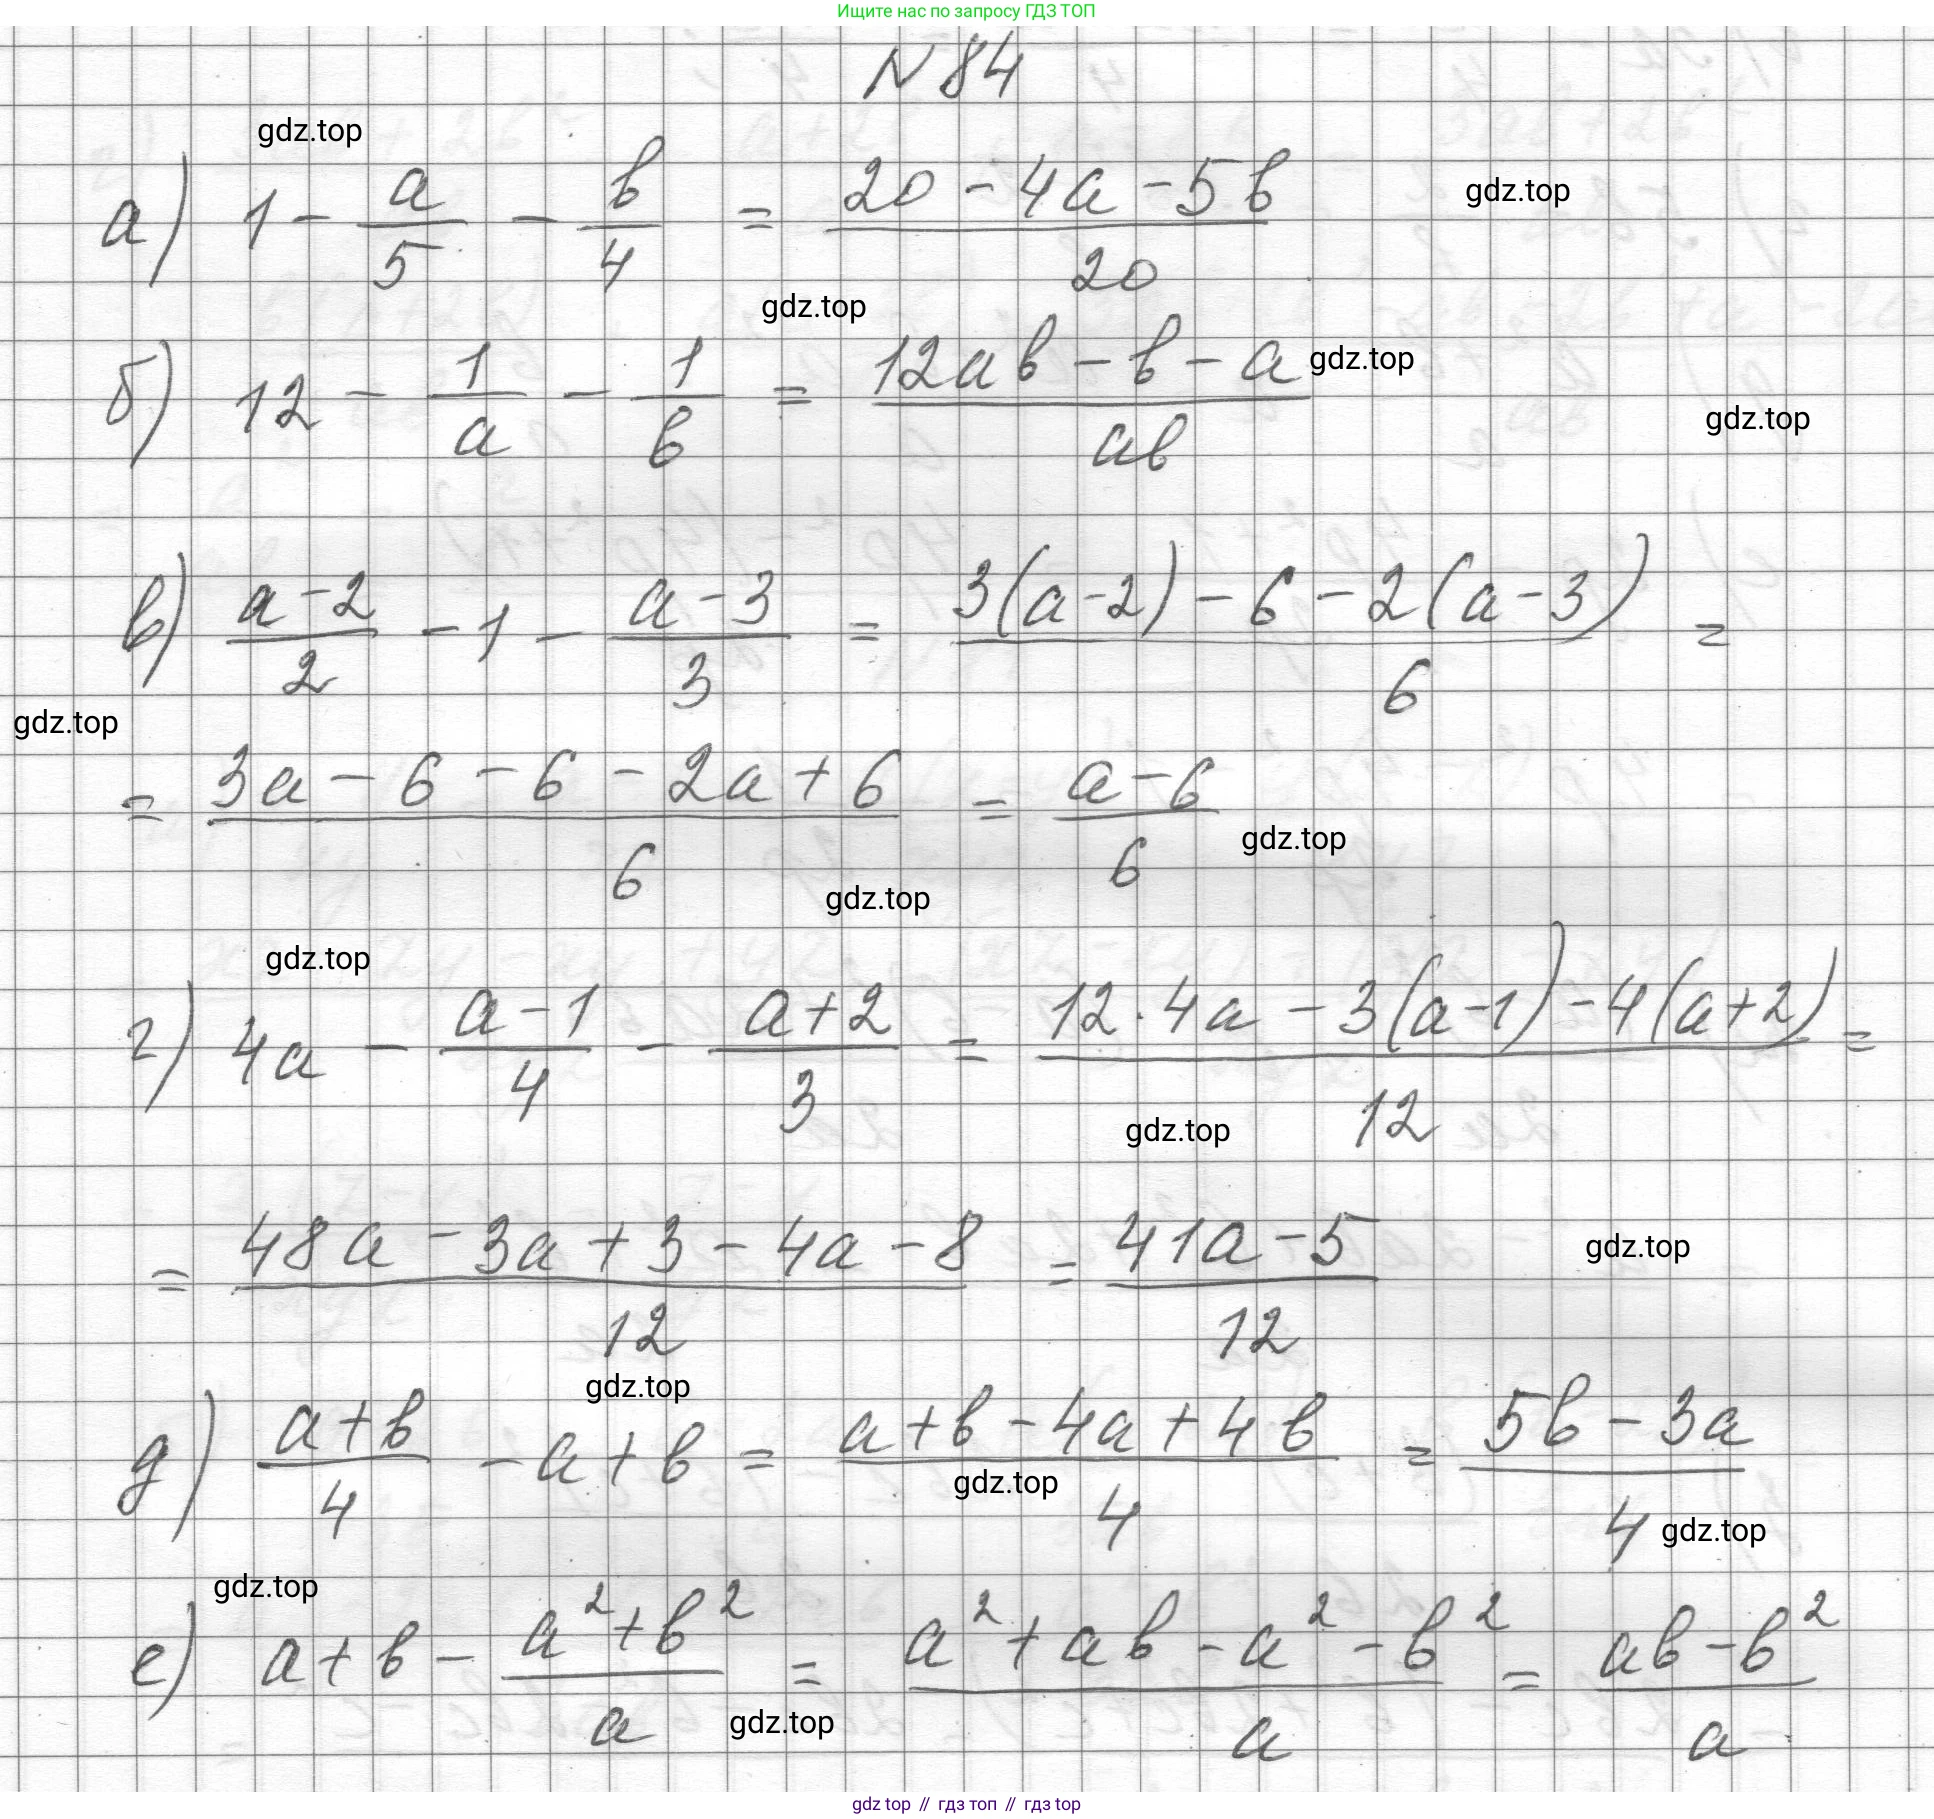 Ищите нас по запросу ГДЗ ТОП
N 84
gdz.top
а) 1 - a/5 - b/4 = (20 - 4a - 5b)/20
gdz.top
gdz.top
б) 12 - 1/a - 1/b = (12ab - b - a)/ab
gdz.top
gdz.top
в) (a-2)/2 - 1 - (a-3)/3 = (3(a-2) - 6 - 2(a-3))/6 =
gdz.top
= (3a - 6 - 6 - 2a + 6)/6 = (a-6)/6
gdz.top
gdz.top
gdz.top
г) 4a - (a-1)/4 - (a+2)/3 = (12·4a - 3(a-1) - 4(a+2))/12 =
gdz.top
= (48a - 3a + 3 - 4a - 8)/12 = (41a - 5)/12
gdz.top
gdz.top
д) (a+b)/4 - a + b = (a+b - 4a + 4b)/4 = (5b - 3a)/4
gdz.top
gdz.top
gdz.top
е) a + b - (a²+b²)/a = (a² + ab - a² - b²)/a = (ab - b²)/a
gdz.top
gdz top // гдз топ // гдз top